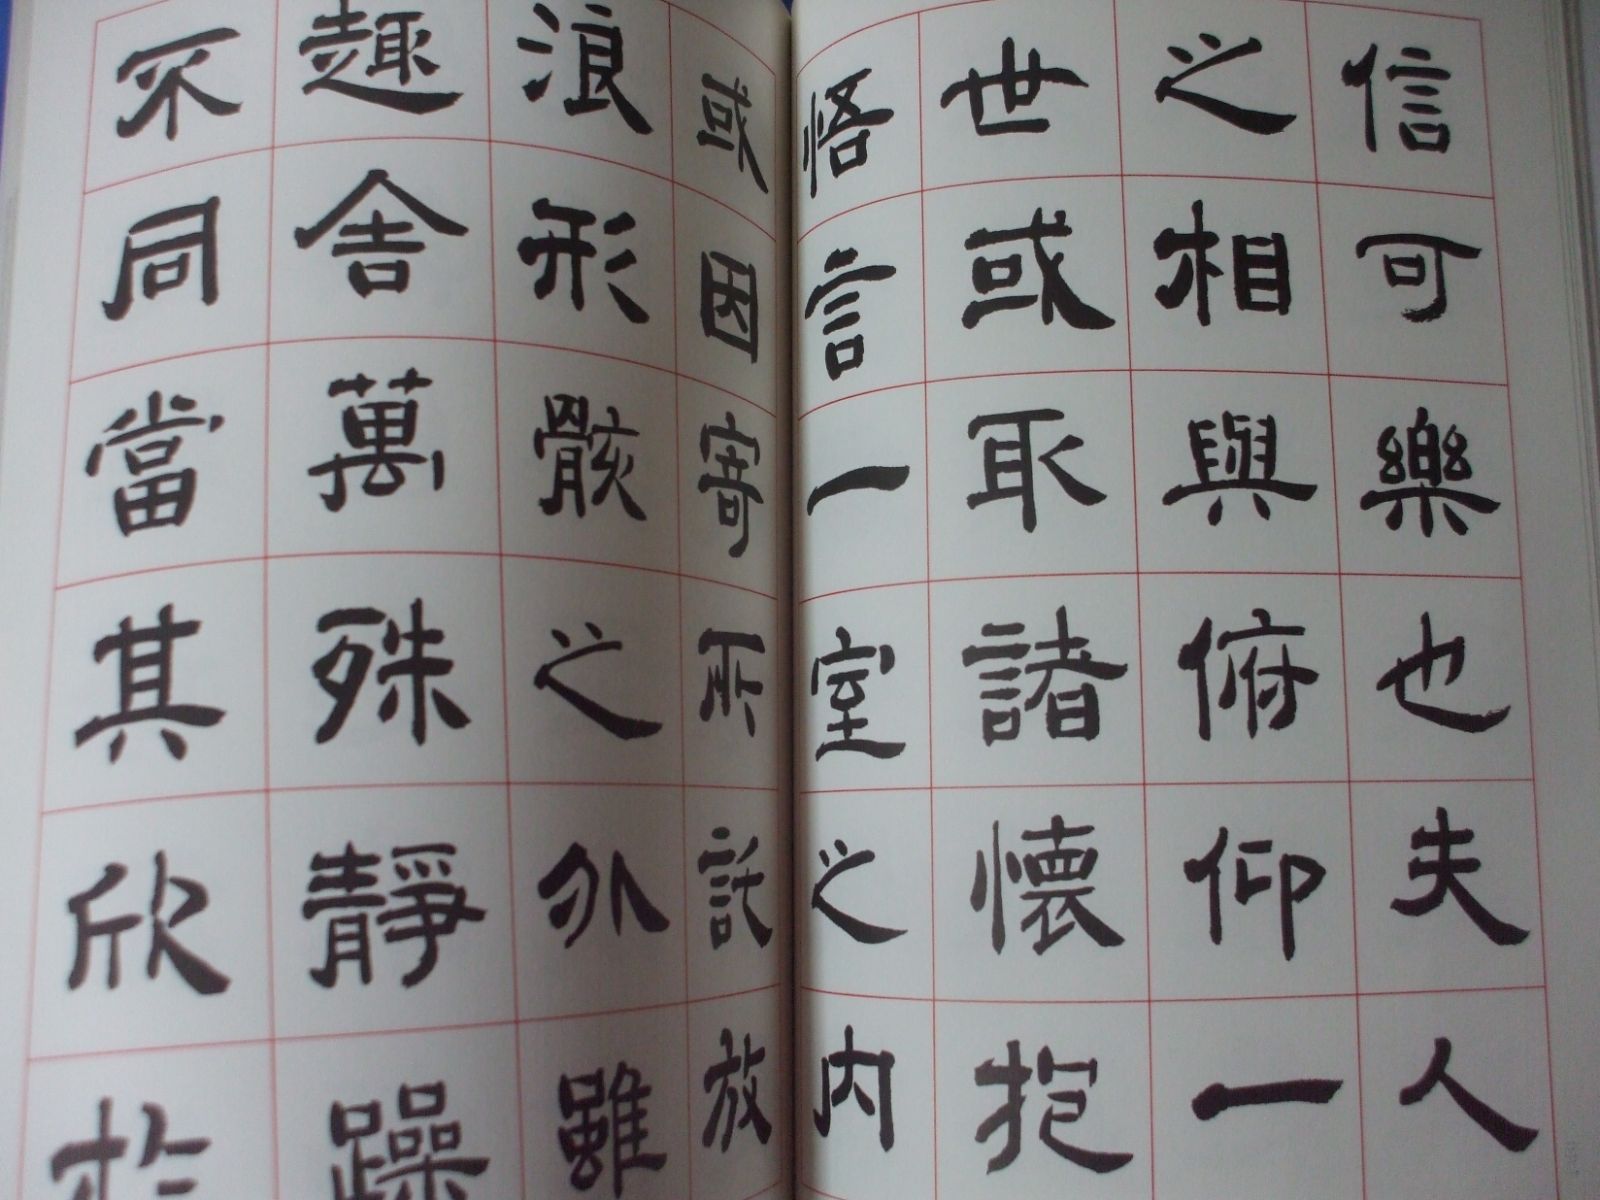 信可樂也夫人
之相與俯仰一
世或取諸懷抱
悟言一室之内
或因寄所託放
浪形骸之外雖
趣舍萬殊靜躁
不同當其欣於